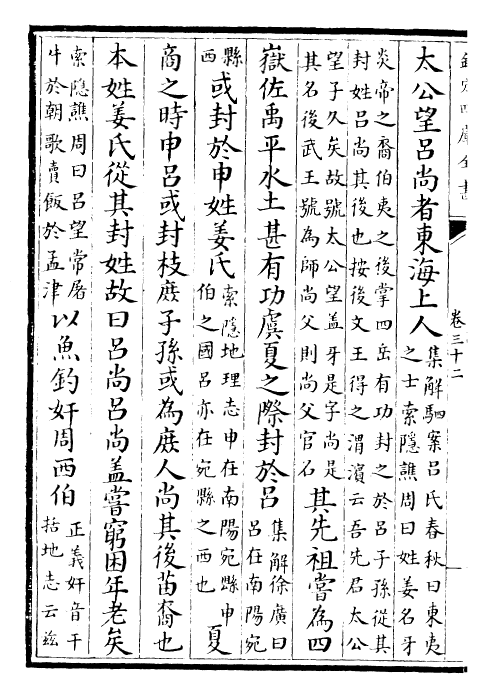 欽定四庫全書
卷三十二
太公望呂尚者東海上人
集解駰案呂氏春秋曰東夷
之士索隱譙周曰姓姜名牙
炎帝之裔伯夷之後掌四岳有功封之於呂子孫從其
封姓呂尚其後也按後文王得之渭濱云吾先君太公
望子久矣故號太公望盖牙是字尚是
其名後武王號為師尚父則尚父官名
其先祖嘗為四
嶽佐禹平水土甚有功虞夏之際封於呂
集解徐廣曰
呂在南陽宛
縣
西
或封於申姓姜氏
索隱地理志申在南陽宛縣申
伯之國呂亦在宛縣之西也
夏
商之時申呂或封枝庶子孫或為庶人尚其後苗裔也
本姓姜氏從其封姓故曰呂尚呂尚盖嘗窮困年老矣
索隱譙周曰呂望常屠
牛於朝歌賣飯於孟津
以魚釣奸周西伯
正義奸音干
括地志云兹